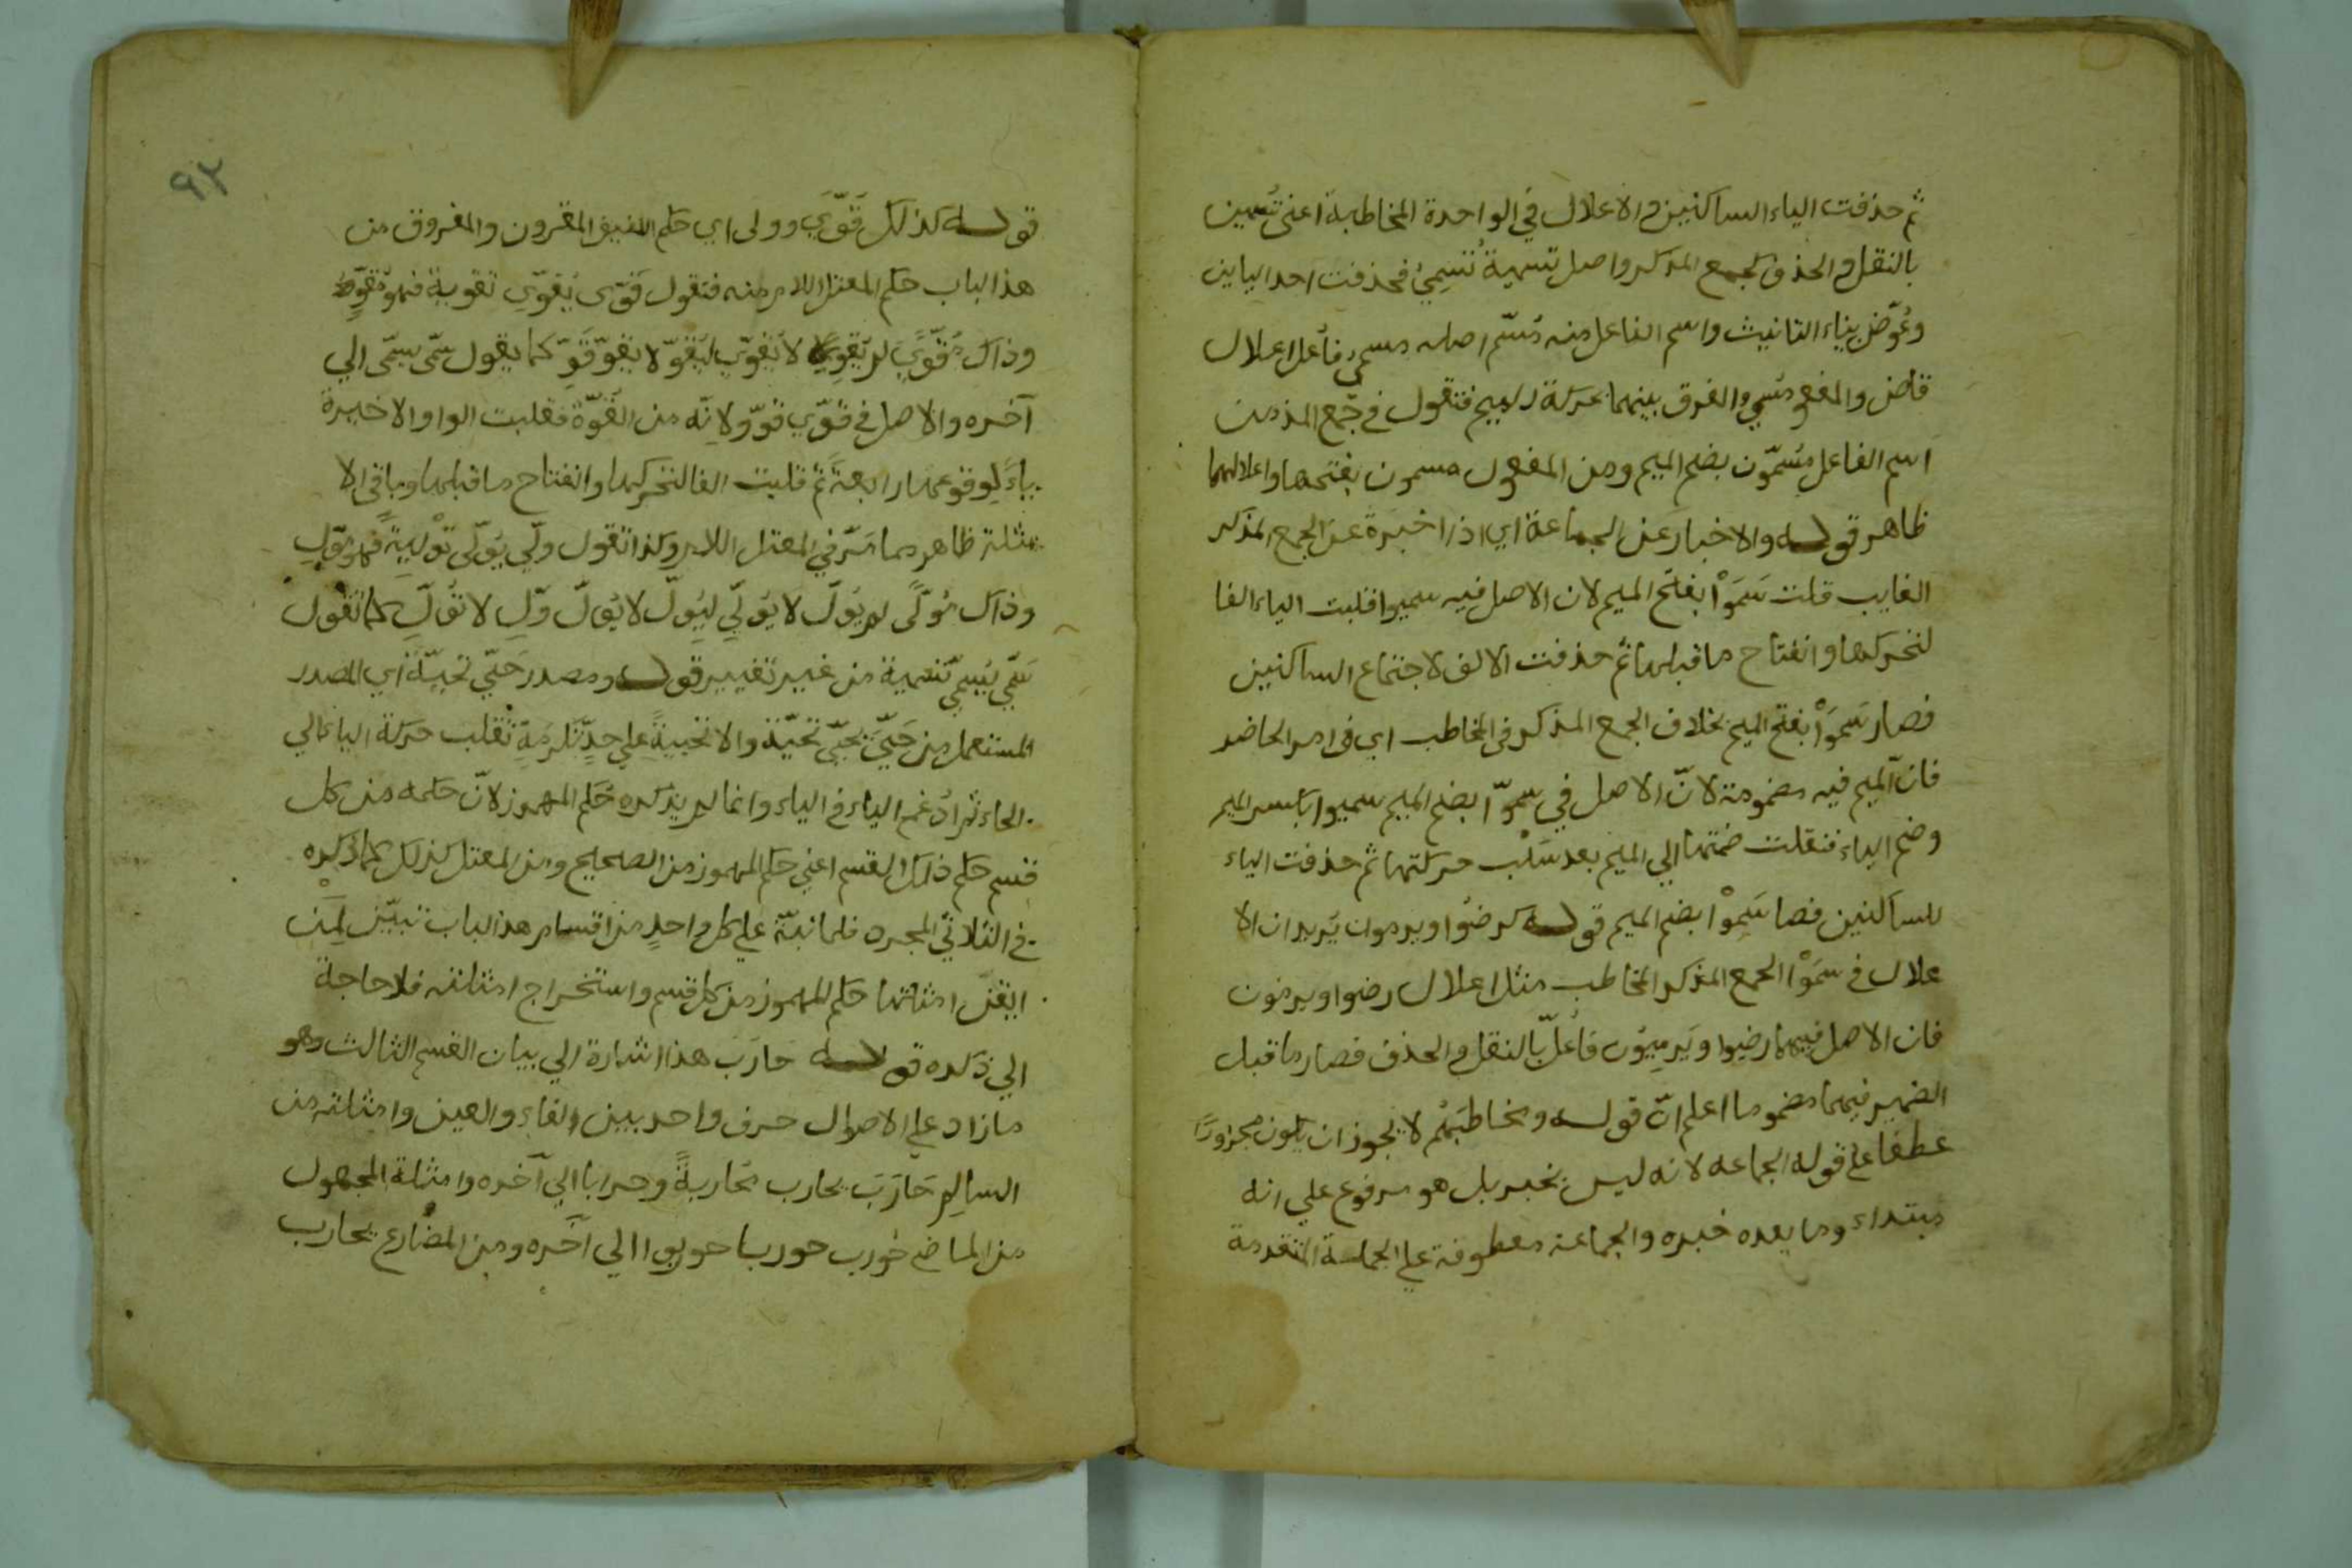 ثم حذفت الياء الساكنين والاعلال في الواحدة المخاطبة اعنى تسمين
بالنقل والحذف كجمع المذكر واصل تسمية تسمي فحذفت احد اليايين
وعُوّض بتاء التانيث واسم الفاعل منه مُسَمّ اصله مسمي فأعل اعلال
قاض والمفعو مسمي والفرق بينهما بحركة الميم فتقول في جمع المذ من
اسم الفاعل مُسَمّون بضم الميم ومن المفعول مسمون بفتحها واعلالهما
ظاهر قوله والاخبار عن الجماعة اي اذا اخبرة عن الجمع المذكر
الغايب قلت سَمَوْا بفتح الميم لان الاصل فيه سميوا قلبت الياء الفا
لتحركها وانفتاح ما قبلها ثم حذفت الالف لاجتماع الساكنين
فصار سَمَوْا بفتح الميم بخلاف الجمع المذكر في المخاطب اي في امر الحاضر
فان الميم فيه مضمومة لانّ الاصل في سموّا بضم الميم سميوا بكسر الميم
وضم الياء فنقلت ضمتها الي الميم بعد سَلْب حركتها ثم حذفت الياء
للساكنين فصا سَموْا بضم الميم قوله كرضوا ويرمون يُريد ان الا
علال في سمَوْا الجمع المذكر المخاطب مثل اعلال رضوا ويرمون
فان الاصل فيهما رضيوا ويَرمِيُون فأُعلّ بالنقل والحذف فصار ما قبل
الضمير فيهما مضموما اعلم انّ قوله ومخاطبتهُم لا يجوز ان يكون مجرورًا
عطفا على قوله الجماعه لانه ليس بخبر بل هو مرفوع علي انه
مبتداء وما بعده خبره والجماعة معطوفة علي الجملة المتقدمة
٩٢
قوله كذلك قَوّي وولى اي حكم اللفيف المقرون والمفروق من
هذا الباب حكم المعتل اللام منه فتقول قوّى يُقوّي تقوية فهو مُقَوٍّ
وذاك مُقوَّيً لم يُقوِّ لا يُقوّي ليُقوّ لا يقوّ قَوِّ كما يقول سمّى يسمّى الي
آخره والاصل في قوّي قوّو لانّه من القُوّة فقلبت الواو الاخيرة
ياءً لِوقوعها رابعةً ثم قلبت الفا لتحركها وانفتاح ما قبلها وباقى الا
مثلة ظاهر مما مَرّ في المعتل اللام وكذا تقول ولّي يُوَلّى تَوْلِيَةً فهو مُوَلٍّ
وذاك مُولًّى لم يُوَلِّ لا يُوَلّي لِيُوَلّ لا يُوَلّ وَلِّ لا تُوَلِّ كما تقول
سَمّي يُسَمّي تسمية من غير تغيير قوله ومصدر حَيّي تحيّةً اي المصدر
المستعمل من حَيّيَ يُحَيّي تحيّة والا تحييةً علي حدِّ تَكْرِمَةٍ ثُقلب حركة الياء الي
الحاء ثم اُدغم الياء في الياء وانما لم يذكره حُكم المهموز لانّ حكمه من كل
قسم حكم ذلك القسم اعني حكم المهموز من الصحيح ومن المعتل كذلك كما ذكره
في الثلاثي المجرد فلما نبّه علي كل واحدٍ من اقسام هذا الباب تبيّن لِمَنْ
ايقن امثلتها حكم المهموز من كل قسم واستخراج امثلته فلا حاجة
الي ذكره قوله حارَب هذا اشارة الي بيان القسم الثالث وهو
ما زاد علي الاصول حرف واحد بين الفاء والعين وامثلته من
السالم حَارَبَ يحارب مُحاربةً وحرابا الي آخره وامثلة المجهول
من الماضي حُورب حوربا حوربوا الي آخره ومن المضُارع يحارب